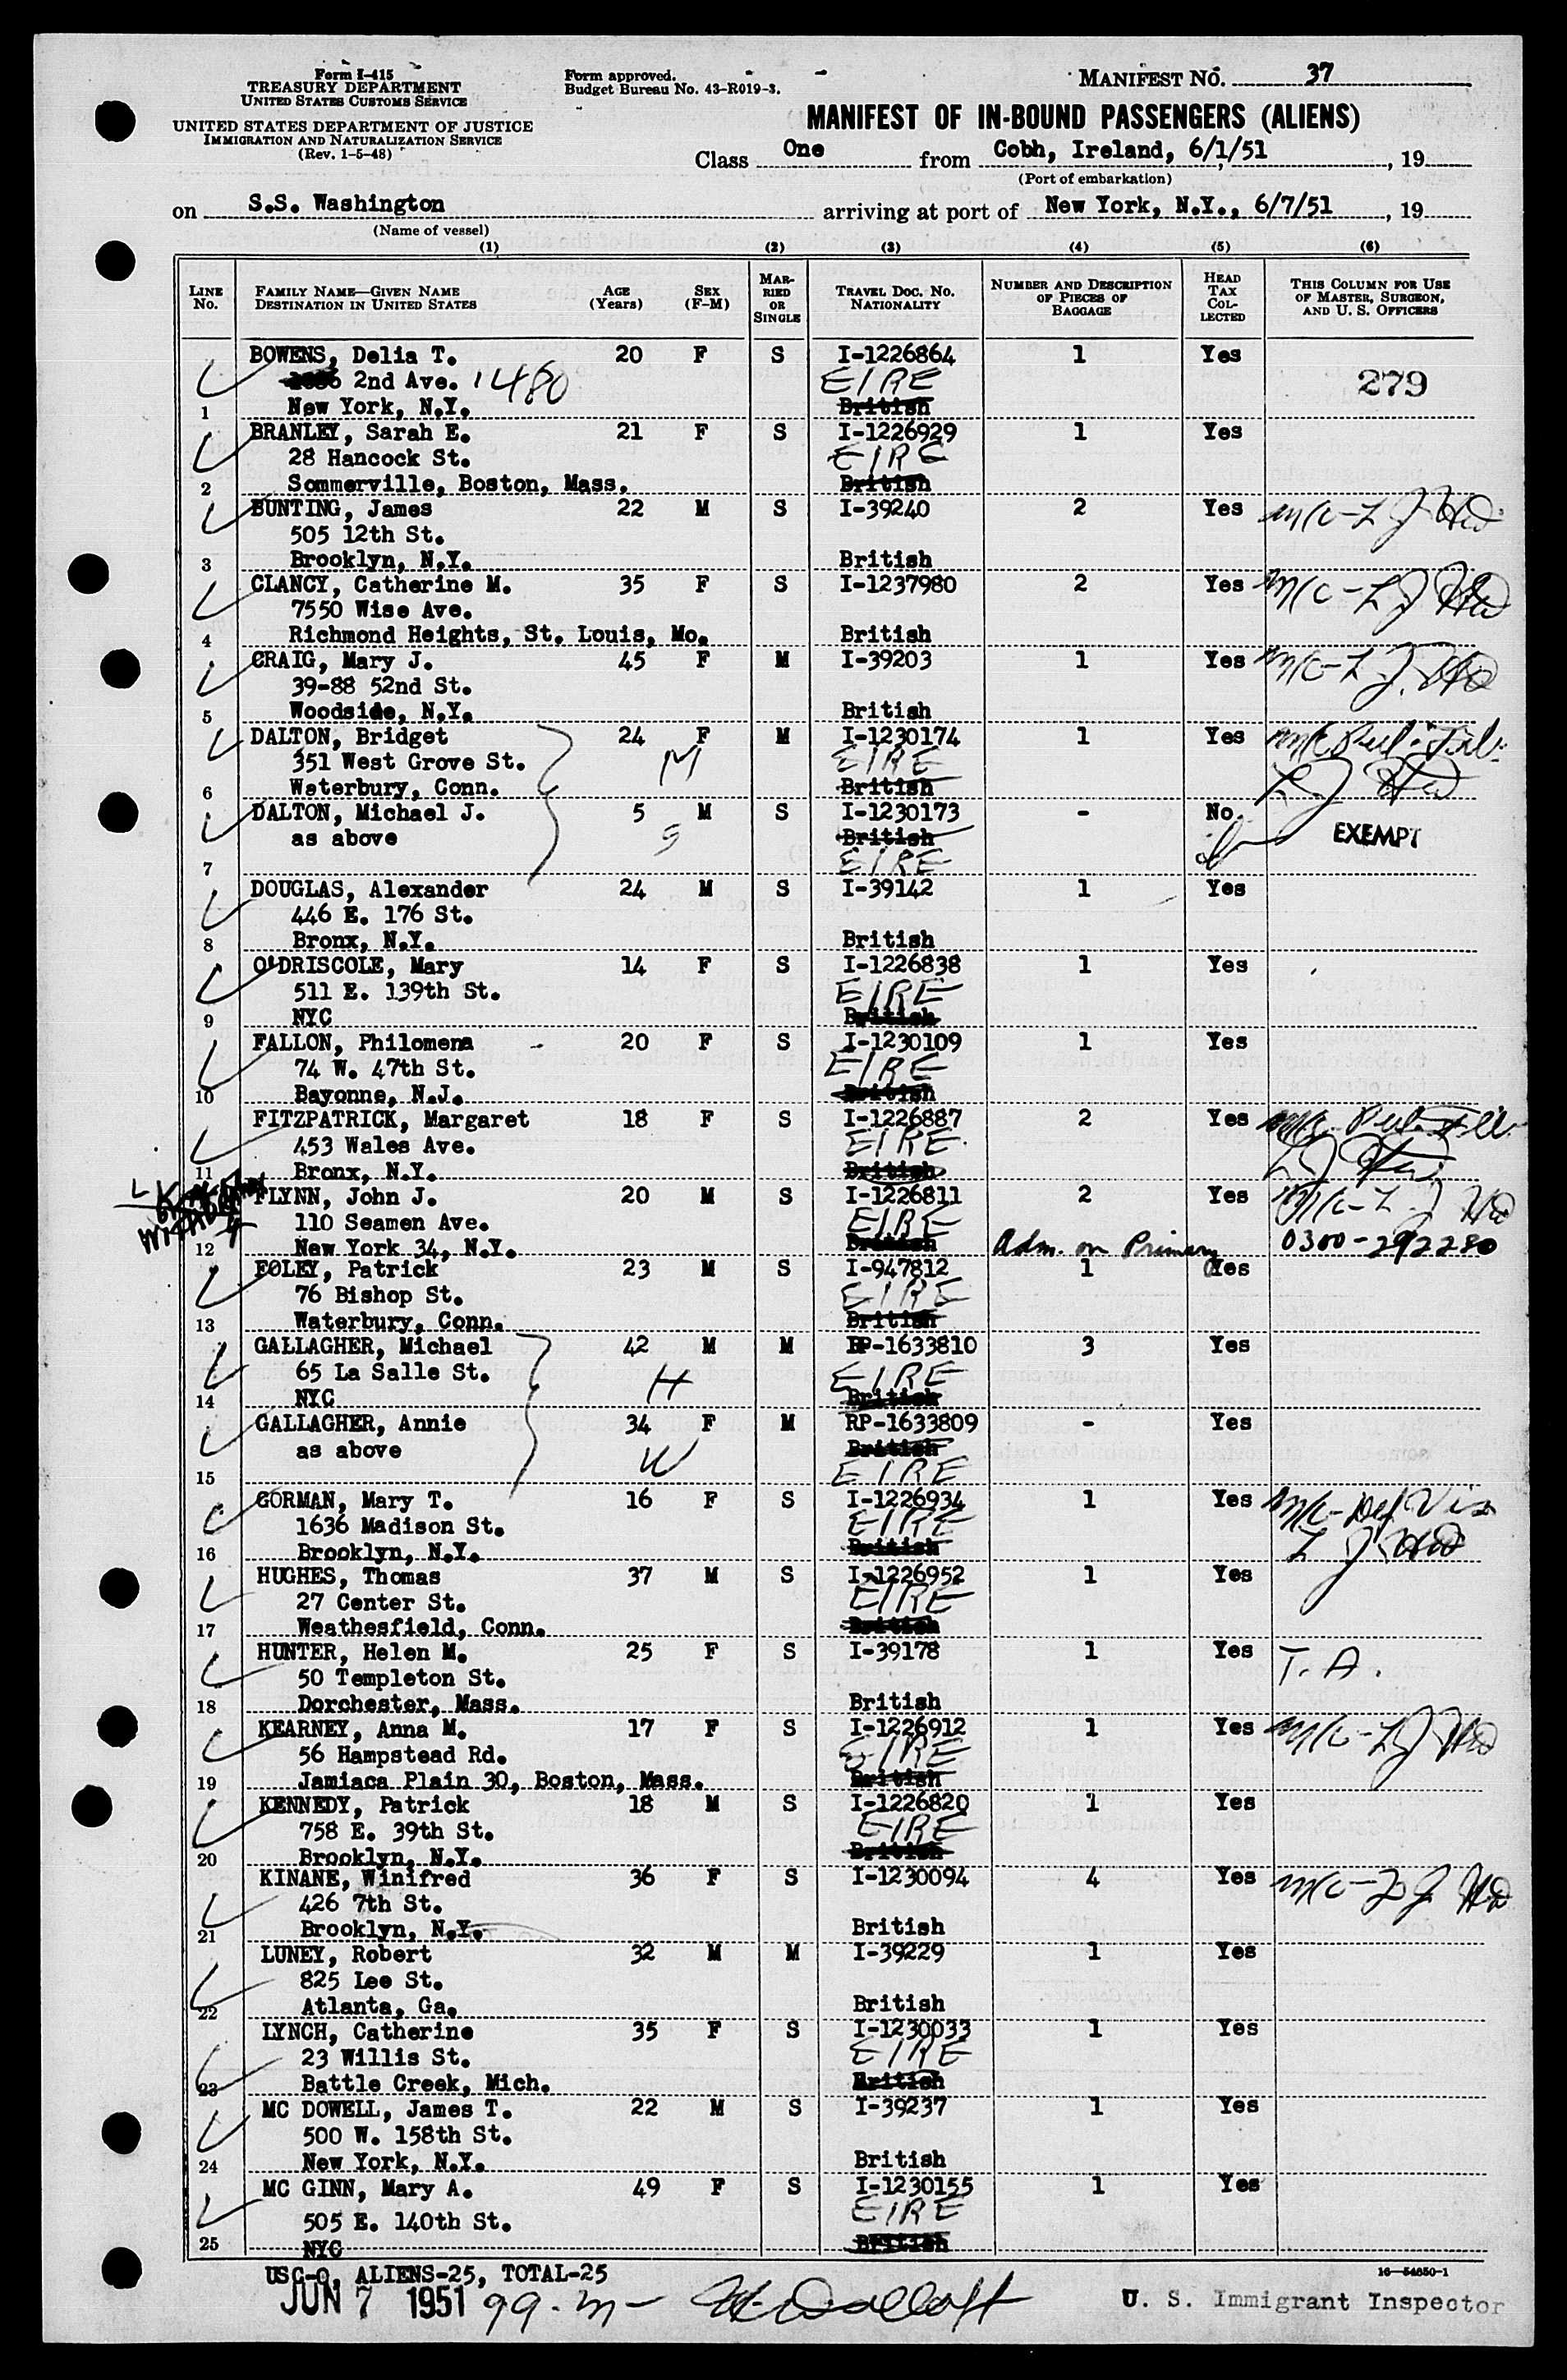 Form I-415
TREASURY DEPARTMENT
UNITED STATES CUSTOMS SERVICE
UNITED STATES DEPARTMENT OF JUSTICE
IMMIGRATION AND NATURALIZATION SERVICE
(Rev. 1-5-48)
Form approved.
Budget Bureau No. 43-R019-3.
MANIFEST NO. 37
MANIFEST OF IN-BOUND PASSENGERS (ALIENS)
Class One from Cobh, Ireland, 6/1/51, 19
(Port of embarkation)
on S.S. Washington arriving at port of New York, N.Y., 6/7/51, 19
(Name of vessel)
(1) (2) (3) (4) (5) (6)
LINE No. FAMILY NAME—GIVEN NAME DESTINATION IN UNITED STATES AGE (Years) SEX (F-M) MARRIED OR SINGLE TRAVEL DOC. NO. NATIONALITY NUMBER AND DESCRIPTION OF PIECES OF BAGGAGE HEAD TAX COLLECTED THIS COLUMN FOR USE OF MASTER, SURGEON, AND U. S. OFFICERS
BOWENS, Delia T. 20 F S I-1226864 1 Yes
2nd Ave. 1480 EIRE 279
1 New York, N.Y. British
BRANLEY, Sarah E. 21 F S I-1226929 1 Yes
28 Hancock St. EIRE
2 Sommerville, Boston, Mass. British
BUNTING, James 22 M S I-39240 2 Yes
505 12th St.
3 Brooklyn, N.Y. British
CLANCY, Catherine M. 35 F S I-1237980 2 Yes
7550 Wise Ave.
4 Richmond Heights, St. Louis, Mo. British
CRAIG, Mary J. 45 F M I-39203 1 Yes
39-88 52nd St.
5 Woodside, N.Y. British
DALTON, Bridget 24 F M I-1230174 1 Yes
351 West Grove St. M EIRE
6 Waterbury, Conn. British
DALTON, Michael J. 5 M S I-1230173 - No.
as above S British EXEMPT
7 EIRE
DOUGLAS, Alexander 24 M S I-39142 1 Yes
446 E. 176 St.
8 Bronx, N.Y. British
O'DRISCOLE, Mary 14 F S I-1226838 1 Yes
511 E. 139th St. EIRE
9 NYC British
FALLON, Philomena 20 F S I-1230109 1 Yes
74 W. 47th St. EIRE
10 Bayonne, N.J. British
FITZPATRICK, Margaret 18 F S I-1226887 2 Yes
453 Wales Ave. EIRE
11 Bronx, N.Y. British
FLYNN, John J. 20 M S I-1226811 2 Yes
110 Seamen Ave. EIRE
12 New York 34, N.Y. British Adm. on Primary 0300-292280
FOLEY, Patrick 23 M S I-947812 1 Yes
76 Bishop St. EIRE
13 Waterbury, Conn. British
GALLAGHER, Michael 42 M M RP-1633810 3 Yes
65 La Salle St. H EIRE
14 NYC British
GALLAGHER, Annie 34 F M RP-1633809 - Yes
as above W British
15 EIRE
GORMAN, Mary T. 16 F S I-1226934 1 Yes
1636 Madison St. EIRE
16 Brooklyn, N.Y. British
HUGHES, Thomas 37 M S I-1226952 1 Yes
27 Center St. EIRE
17 Weathesfield, Conn. British
HUNTER, Helen M. 25 F S I-39178 1 Yes T. A.
50 Templeton St.
18 Dorchester, Mass. British
KEARNEY, Anna M. 17 F S I-1226912 1 Yes
56 Hampstead Rd. EIRE
19 Jamiaca Plain 30, Boston, Mass. British
KENNEDY, Patrick 18 M S I-1226820 1 Yes
758 E. 39th St. EIRE
20 Brooklyn, N.Y. British
KINANE, Winifred 36 F S I-1230094 4 Yes
426 7th St.
21 Brooklyn, N.Y. British
LUNEY, Robert 32 M M I-39229 1 Yes
825 Lee St.
22 Atlanta, Ga. British
LYNCH, Catherine 35 F S I-1230033 1 Yes
23 Willis St. EIRE
23 Battle Creek, Mich. British
MC DOWELL, James T. 22 M S I-39237 1 Yes
500 W. 158th St.
24 New York, N.Y. British
MC GINN, Mary A. 49 F S I-1230155 1 Yes
505 E. 140th St. EIRE
25 NYC British
USC-0, ALIENS-25, TOTAL-25
16—54650-1
JUN 7 1951
U. S. Immigrant Inspector